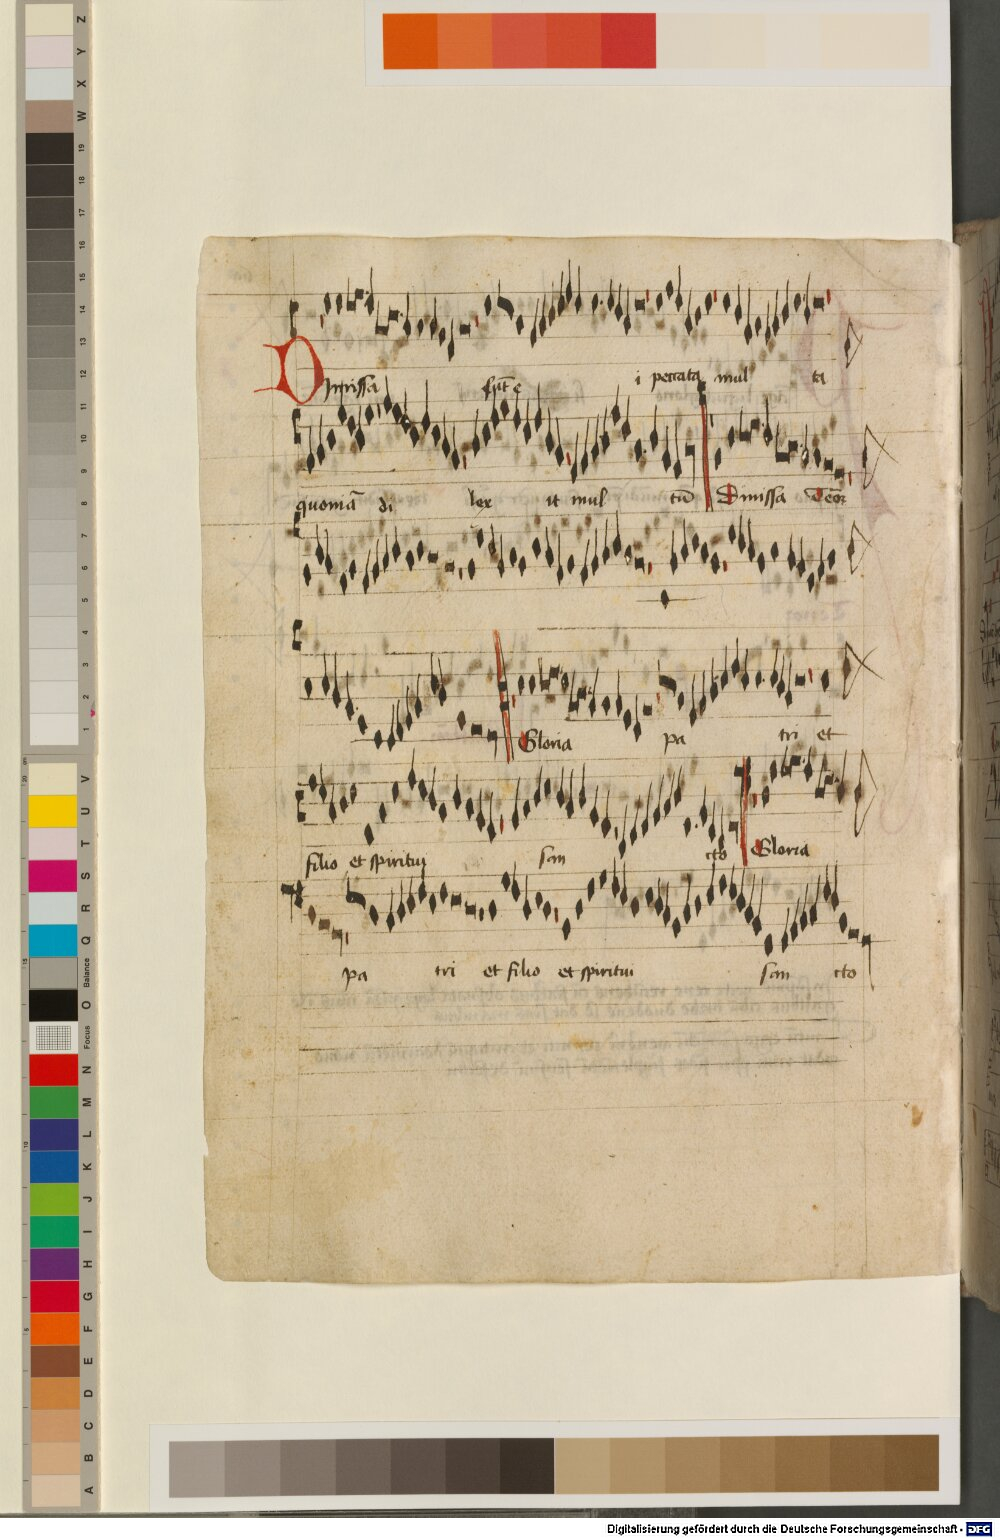 Dimissa sūt e i peccata mul ta
quoniā di lex it mul tū Dimissa Teor
Gloria pa tri et
filio et spiritui san cto Gloria
pa tri et filio et spiritui san cto
Digitalisierung gefördert durch die Deutsche Forschungsgemeinschaft - DFG